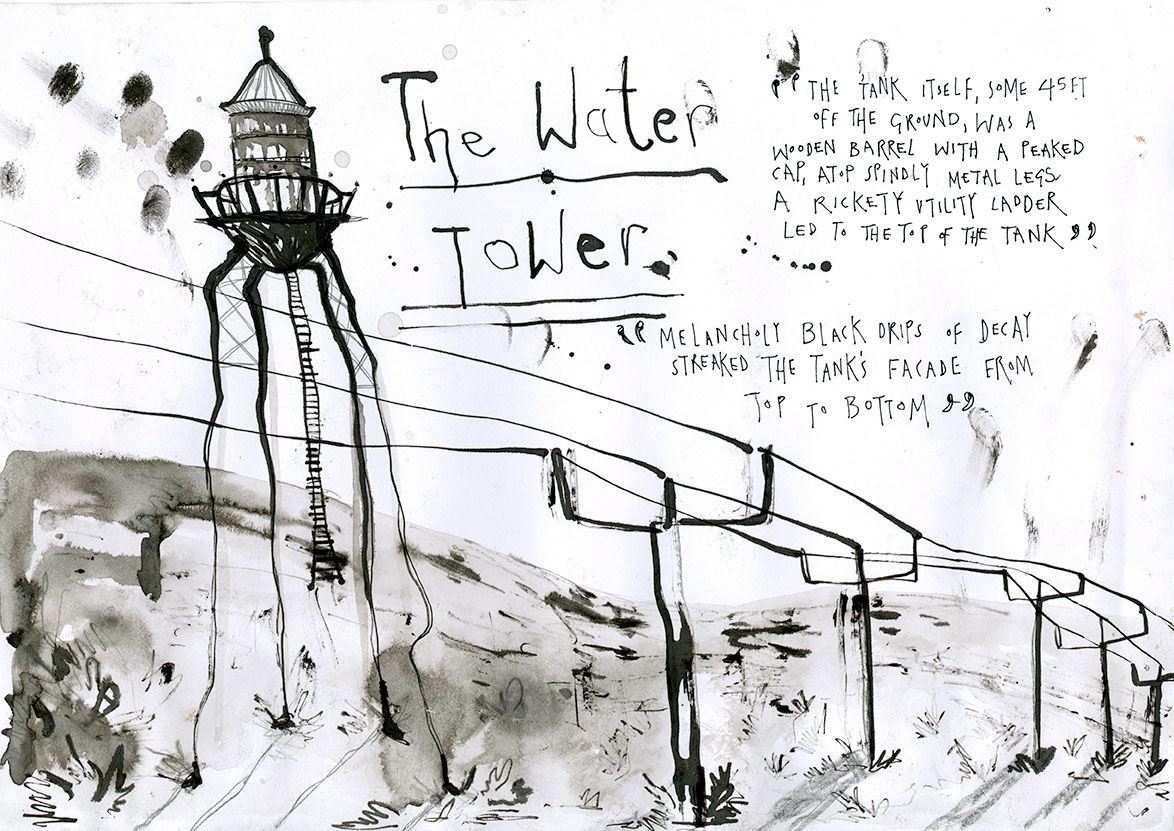 The Water
Tower.
" THE TANK ITSELF, SOME 45FT
OFF THE GROUND, WAS A
WOODEN BARREL WITH A PEAKED
CAP, ATOP SPINDLY METAL LEGS
A RICKETY UTILITY LADDER
LED TO THE TOP OF THE TANK "
" MELANCHOLY BLACK DRIPS OF DECAY
STREAKED THE TANK'S FACADE FROM
TOP TO BOTTOM "